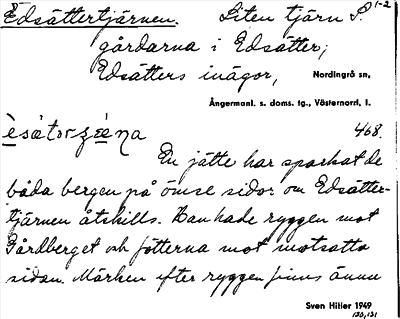 Edsättertjärnen. Liten tjärn S. 1-2
gårdarna i Edsätter;
Edsätters inägor, Nordingrå sn,
Ångermanl. s. doms. tg., Västernorrl. l.
468.
En jätte har sparkat de
båda bergen på ömse sidor om Edsätter-
tjärnen åtskills. Han hade ryggen mot
Gårdberget och fötterna mot motsatta
sidan. Märken efter ryggen finns ännu
Sven Hitler 1949
130,131